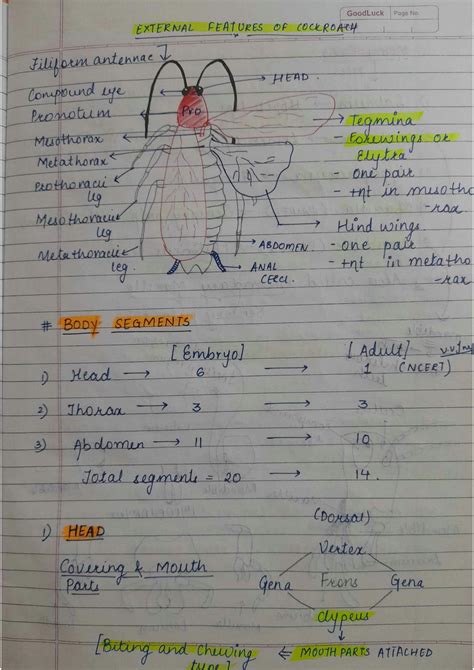 GoodLuck Page No.
EXTERNAL FEATURES OF COCKROACH
Filiform antennae
HEAD.
Compound eye
Pronotum
Pro
Tegmina
Mesothorax
- Forewings or
Elytra
Metathorax
- one pair
Prothoracic
leg
- +nt in mesotho
-rax
Mesothoracic
leg
Hind wings.
Metathoracic
leg.
ABDOMEN
- one pair
- +nt in metatho
-rax
ANAL
CERCI.
# BODY SEGMENTS
[Embryo] [Adult]
1) Head → 6 → 1 (NCERT)
2) Thorax → 3 → 3
3) Abdomen → 11 → 10
Total segments = 20 → 14.
1) HEAD
(Dorsal)
Vertex
Covering & Mouth
Parts
Gena Frons Gena
Clypeus
[Biting and Chewing
type] ⇐ MOUTHPARTS ATTACHED